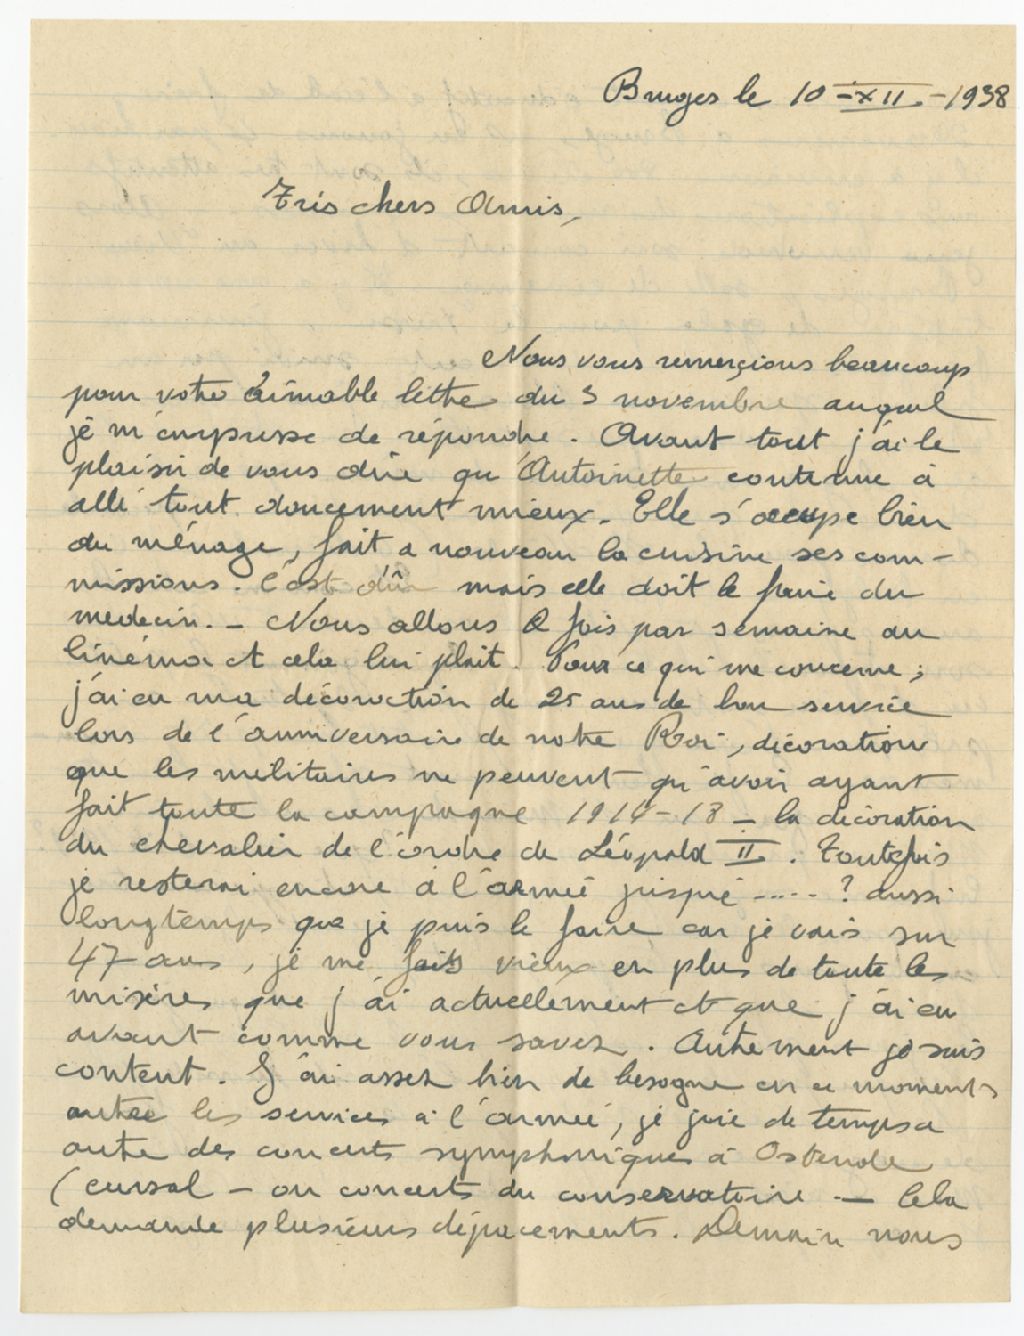 Bruges le 10-XII-1938
Très chers Amis,
Nous vous remerçions beaucoup
pour votre aimable lettre du 3 novembre auquel
je m'empresse de répondre. Avant tout j'ai le
plaisir de vous dire qu'Antoinette continue à
allé tout doucement mieux. Elle s'occupe bien
du ménage, fait a nouveau la cuisine ses com-
missions. C'est dûr mais elle doit le faire du
medecin. - Nous allons 2 fois par semaine au
Cinéma et cela lui plait. Pour ce qui me concerne,
j'ai eu ma décoraction de 25 ans de bon service
lors de l'anniversaire de notre Roi, décoration
que les militaires ne peuvent qu'avoir ayant
fait toute la campagne 1914-18 - la décoration
du chevalier de l'ordre de Léopold II. Toutefois
je resterai encore à l'armée jusque ....? aussi
longtemps que je puis le faire car je vais sur
47 ans, je me fais vieux en plus de toute les
misères que j'ai actuellement et que j'ai eu
avant comme vous savez. Autrement je suis
content. J'ai assez bien de besogne en ce moments
outre les services à l'armée, je joue de temps a
autre des concerts symphoniques à Ostende
(cursal - ou concerts du conservatoire - Cela
demande plusieurs dépacements. Demain nous